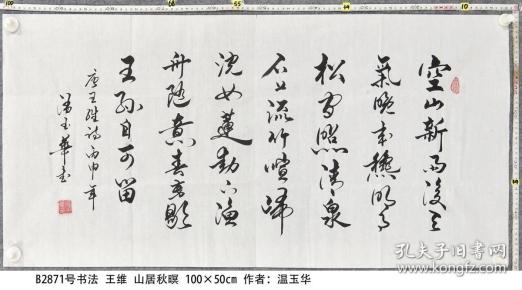 空山新雨後天
氣晚来秋明月
松間照清泉
石上流竹喧歸
浣女蓮動下漁
舟随意春芳歇
王孫自可留
唐王維詩丙申年
温玉華書
B2871号书法 王维 山居秋暝 100×50cm 作者：温玉华
孔夫子旧书网